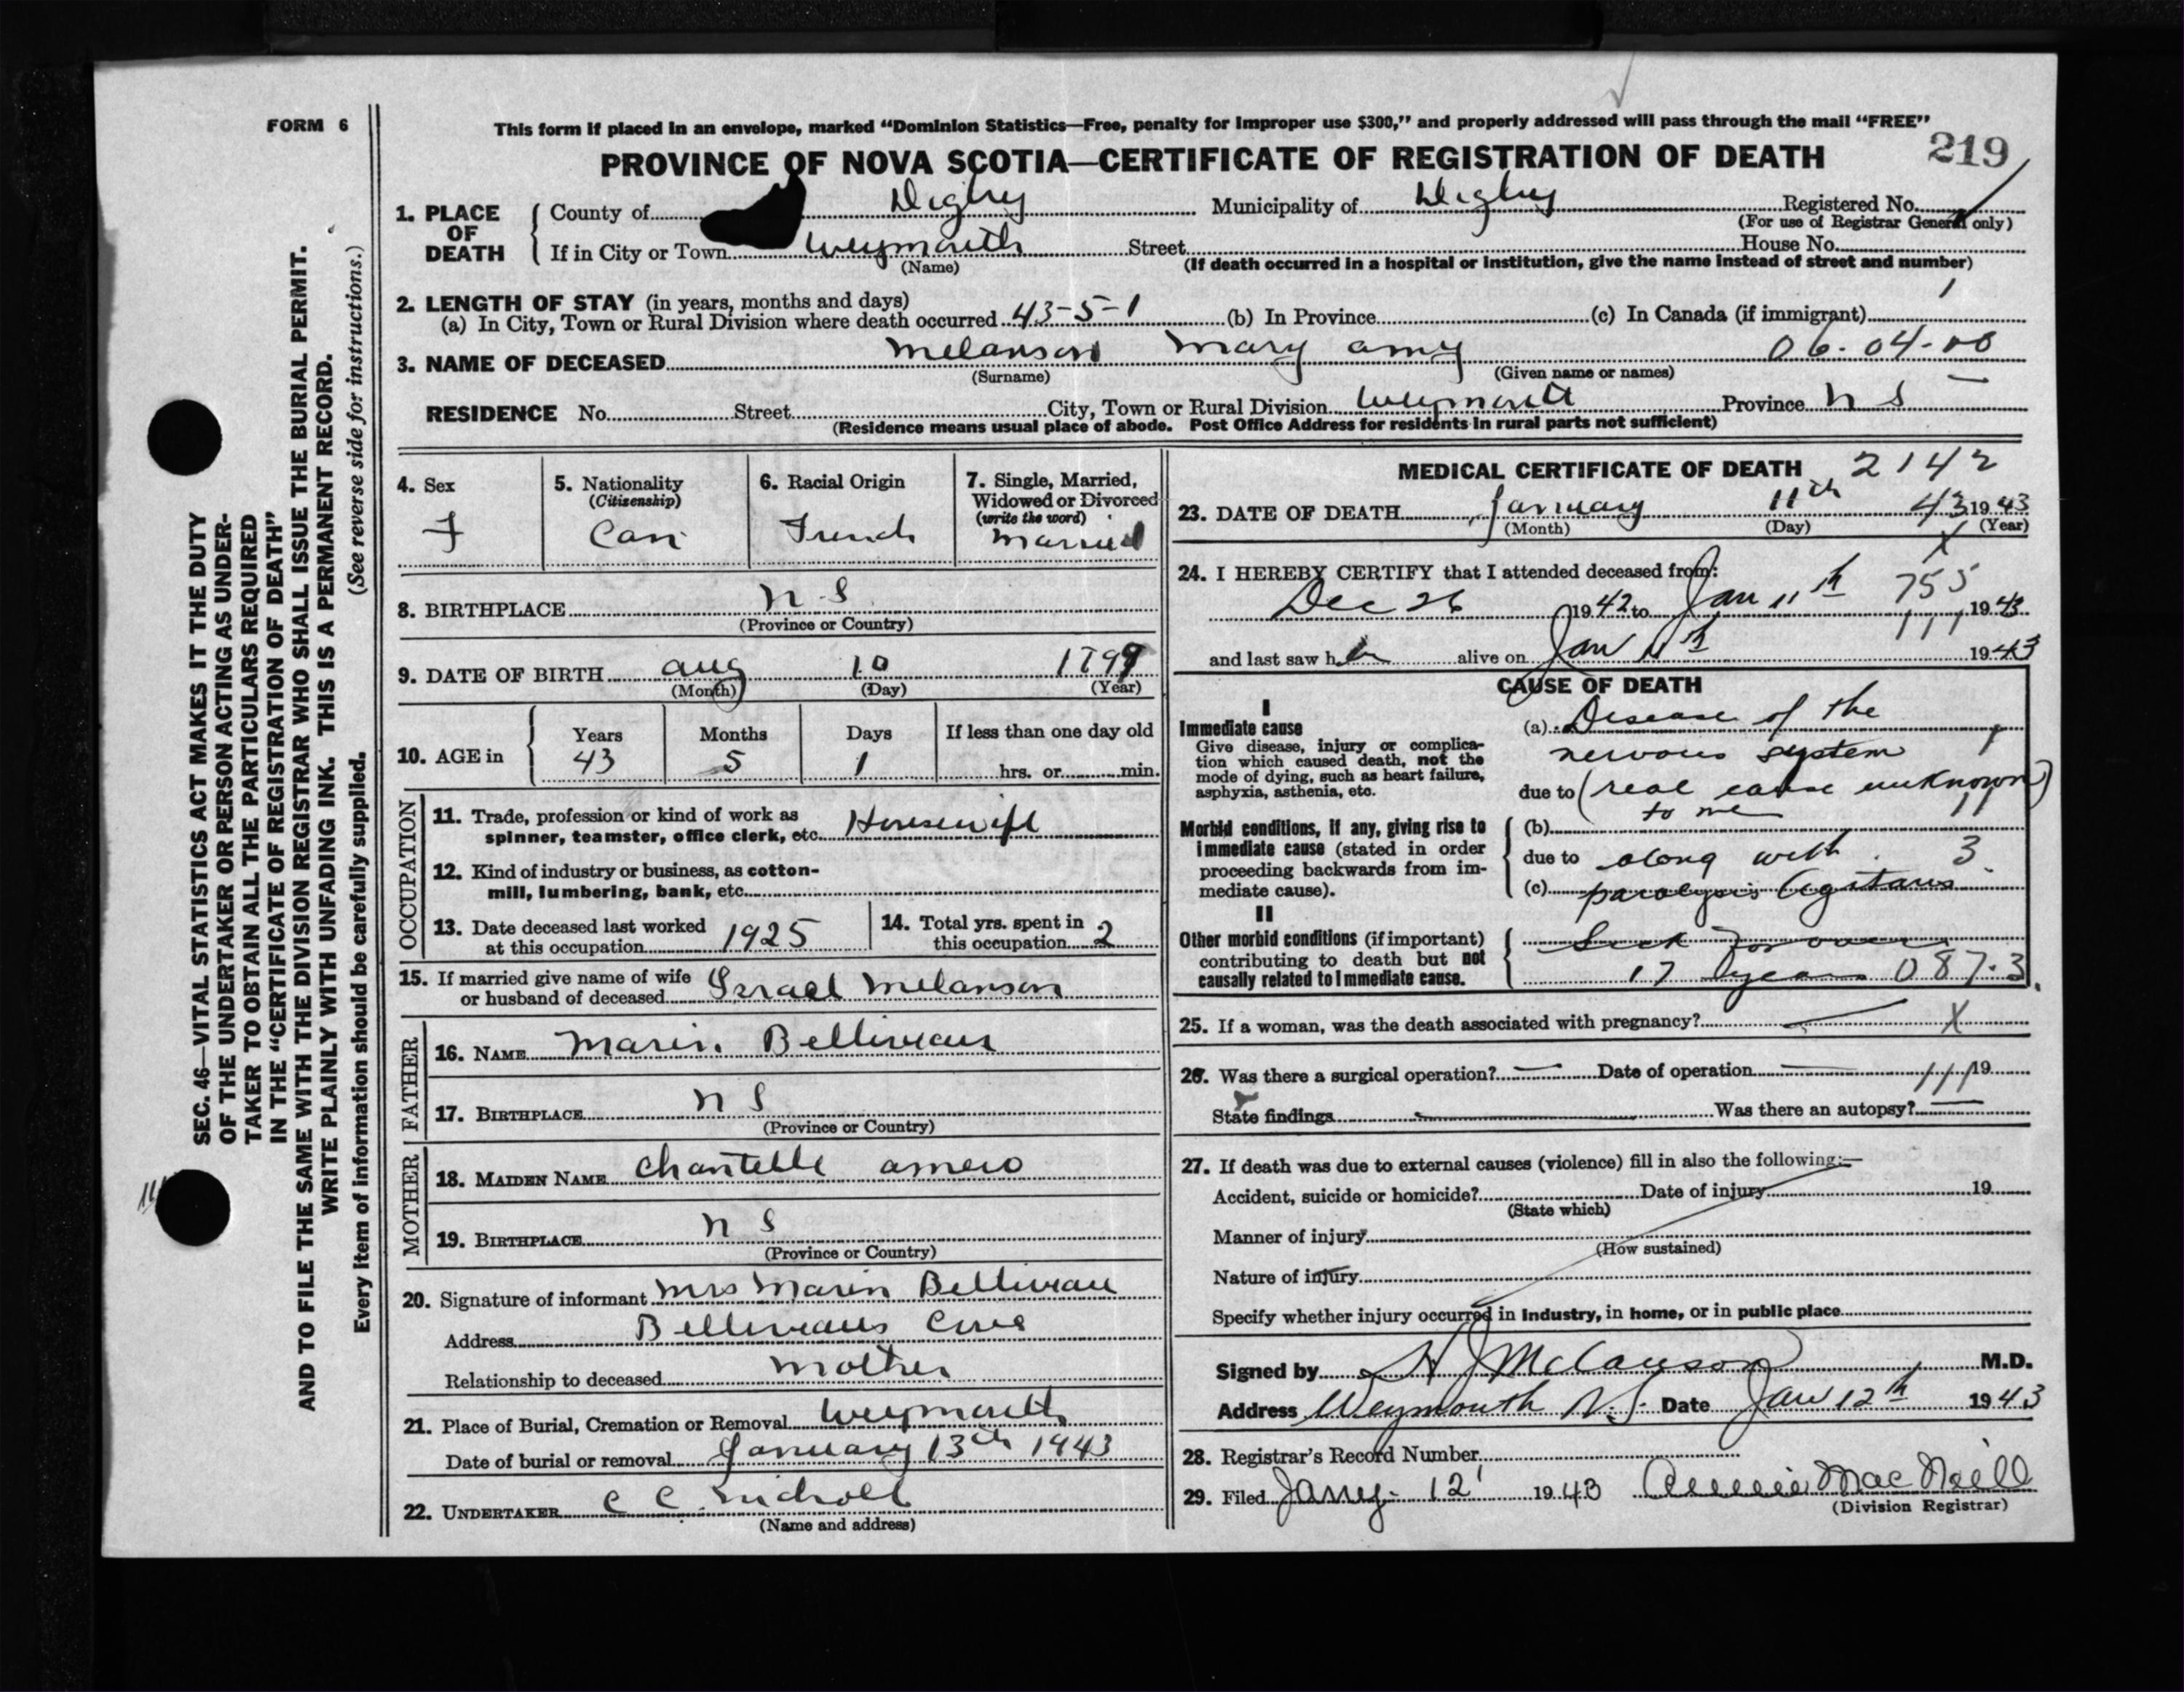 FORM 6
This form if placed in an envelope, marked "Dominion Statistics—Free, penalty for improper use $300," and properly addressed will pass through the mail "FREE"
PROVINCE OF NOVA SCOTIA—CERTIFICATE OF REGISTRATION OF DEATH
219
1. PLACE OF DEATH
County of Digby Municipality of Digby Registered No.
(For use of Registrar General only)
If in City or Town Weymouth Street House No.
(Name)
(If death occurred in a hospital or institution, give the name instead of street and number)
2. LENGTH OF STAY (in years, months and days) 1
(a) In City, Town or Rural Division where death occurred 43-5-1 (b) In Province (c) In Canada (if immigrant)
3. NAME OF DECEASED Melanson Mary Amy 06-04-00
(Surname) (Given name or names)
RESIDENCE No. Street City, Town or Rural Division Weymouth Province N S
(Residence means usual place of abode. Post Office Address for residents in rural parts not sufficient)
4. Sex
F
5. Nationality
(Citizenship)
Can
6. Racial Origin
French
7. Single, Married,
Widowed or Divorced
(write the word)
Married
8. BIRTHPLACE N.S.
(Province or Country)
9. DATE OF BIRTH Aug 10 1899
(Month) (Day) (Year)
10. AGE in
Years Months Days If less than one day old
43 5 1 hrs. or min.
OCCUPATION
11. Trade, profession or kind of work as
spinner, teamster, office clerk, etc. Housewife
12. Kind of industry or business, as cotton-
mill, lumbering, bank, etc.
13. Date deceased last worked
at this occupation 1925
14. Total yrs. spent in
this occupation 2
15. If married give name of wife
or husband of deceased Israel Melanson
FATHER
16. NAME Marin Belliveau
17. BIRTHPLACE N S
(Province or Country)
MOTHER
18. MAIDEN NAME Chantelle Amero
19. BIRTHPLACE N S
(Province or Country)
20. Signature of informant Mrs Marin Belliveau
Address Belliveaus Cove
Relationship to deceased Mother
21. Place of Burial, Cremation or Removal Weymouth
Date of burial or removal January 13th 1943
22. UNDERTAKER C C Nicholl
(Name and address)
MEDICAL CERTIFICATE OF DEATH 2142
23. DATE OF DEATH January 11th 43 1943
(Month) (Day) (Year)
X
24. I HEREBY CERTIFY that I attended deceased from:
Dec 26 1942 to Jan 11th 755 1943
and last saw her alive on Jan 11th 1943
CAUSE OF DEATH
I
Immediate cause
Give disease, injury or complica-
tion which caused death, not the
mode of dying, such as heart failure,
asphyxia, asthenia, etc.
(a) Disease of the
nervous system
due to (real cause unknown)
to me
Morbid conditions, if any, giving rise to
immediate cause (stated in order
proceeding backwards from im-
mediate cause).
(b)
due to along with 3
(c) paralysis Agitans
II
Other morbid conditions (if important)
contributing to death but not
causally related to immediate cause.
Sick for over
17 years 087.3
25. If a woman, was the death associated with pregnancy? — X
26. Was there a surgical operation? — Date of operation — 19
State findings — Was there an autopsy? —
27. If death was due to external causes (violence) fill in also the following:—
Accident, suicide or homicide? Date of injury 19
(State which)
Manner of injury
(How sustained)
Nature of injury
Specify whether injury occurred in industry, in home, or in public place
Signed by H J Melanson M.D.
Address Weymouth N.S. Date Jan 12th 1943
28. Registrar's Record Number
29. Filed Jany. 12 1943 Annie MacNeill
(Division Registrar)
SEC. 46—VITAL STATISTICS ACT MAKES IT THE DUTY
OF THE UNDERTAKER OR PERSON ACTING AS UNDER-
TAKER TO OBTAIN ALL THE PARTICULARS REQUIRED
IN THE "CERTIFICATE OF REGISTRATION OF DEATH"
AND TO FILE THE SAME WITH THE DIVISION REGISTRAR WHO SHALL ISSUE THE BURIAL PERMIT.
WRITE PLAINLY WITH UNFADING INK. THIS IS A PERMANENT RECORD.
Every item of information should be carefully supplied. (See reverse side for instructions.)